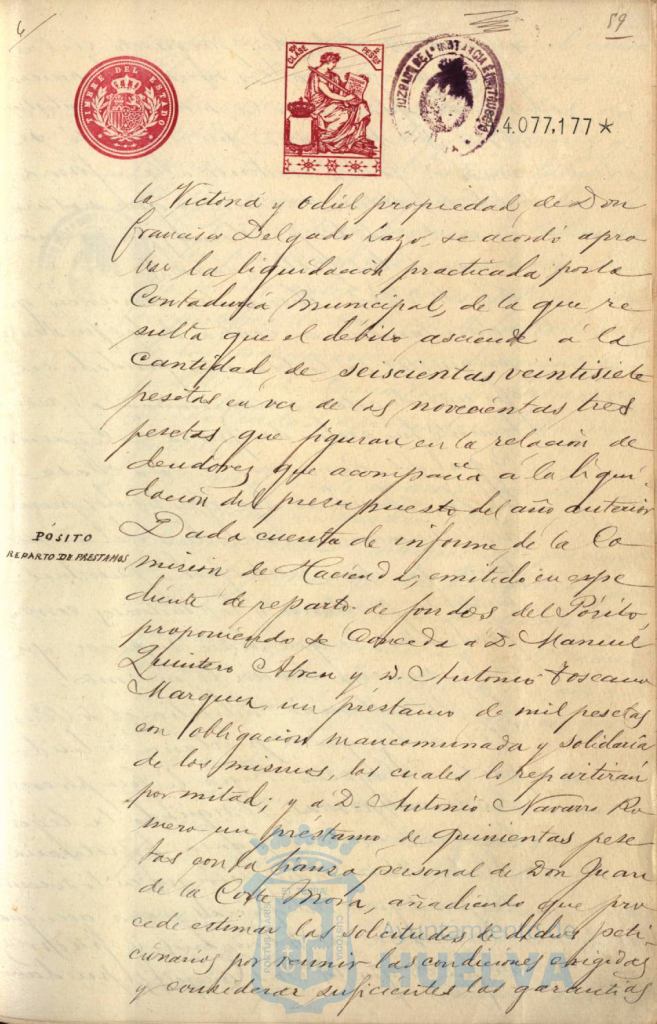 59
TIMBRE DEL ESTADO
10ª CLASE
5 PESETAS
JUZGADO DE 1ª INSTANCIA E INSTRUCCION
4.077,177 *
la Victoria y Odiel propiedad de Don
Francisco Delgado Lazo, se acordó apro
bar la liquidación practicada por la
Contaduría Municipal, de la que re
sulta que el débito asciende á la
cantidad de seiscientas veintisiete
pesetas en vez de las novecientas tres
pesetas que figuran en la relación de
deudores que acompaña á la liqui-
dación del presupuesto del año anterior
PÓSITO
REPARTO DE PRESTAMOS
Dada cuenta de informe de la Co
misión de Hacienda, emitido en expe
diente de reparto de fondos del Pósito,
proponiendo se conceda á D. Manuel
Quintero Abreu y D. Antonio Toscano
Marquez un préstamo de mil pesetas
con obligación mancomunada y solidaria
de los mismos, los cuales lo repartirán
por mitad; y á D. Antonio Navarro Ro
mero un préstamo de quinientas pese
tas con la fianza personal de Don Juan
de la Corte Mora, añadiendo que pro
cede estimar las solicitudes de dichos peti
cionarios por reunir las condiciones exigidas
y considerar suficientes las garantías
Ayuntamiento de
HUELVA